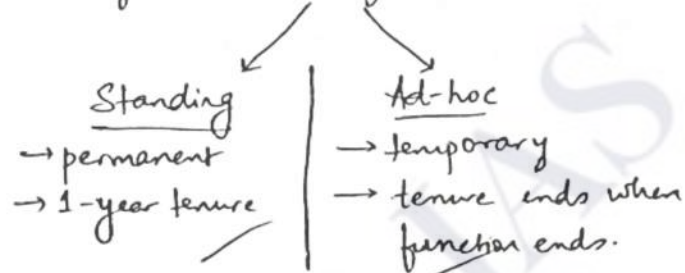 Standing
→ permanent
→ 1-year tenure
Ad-hoc
→ temporary
→ tenure ends when
function ends.
IAS